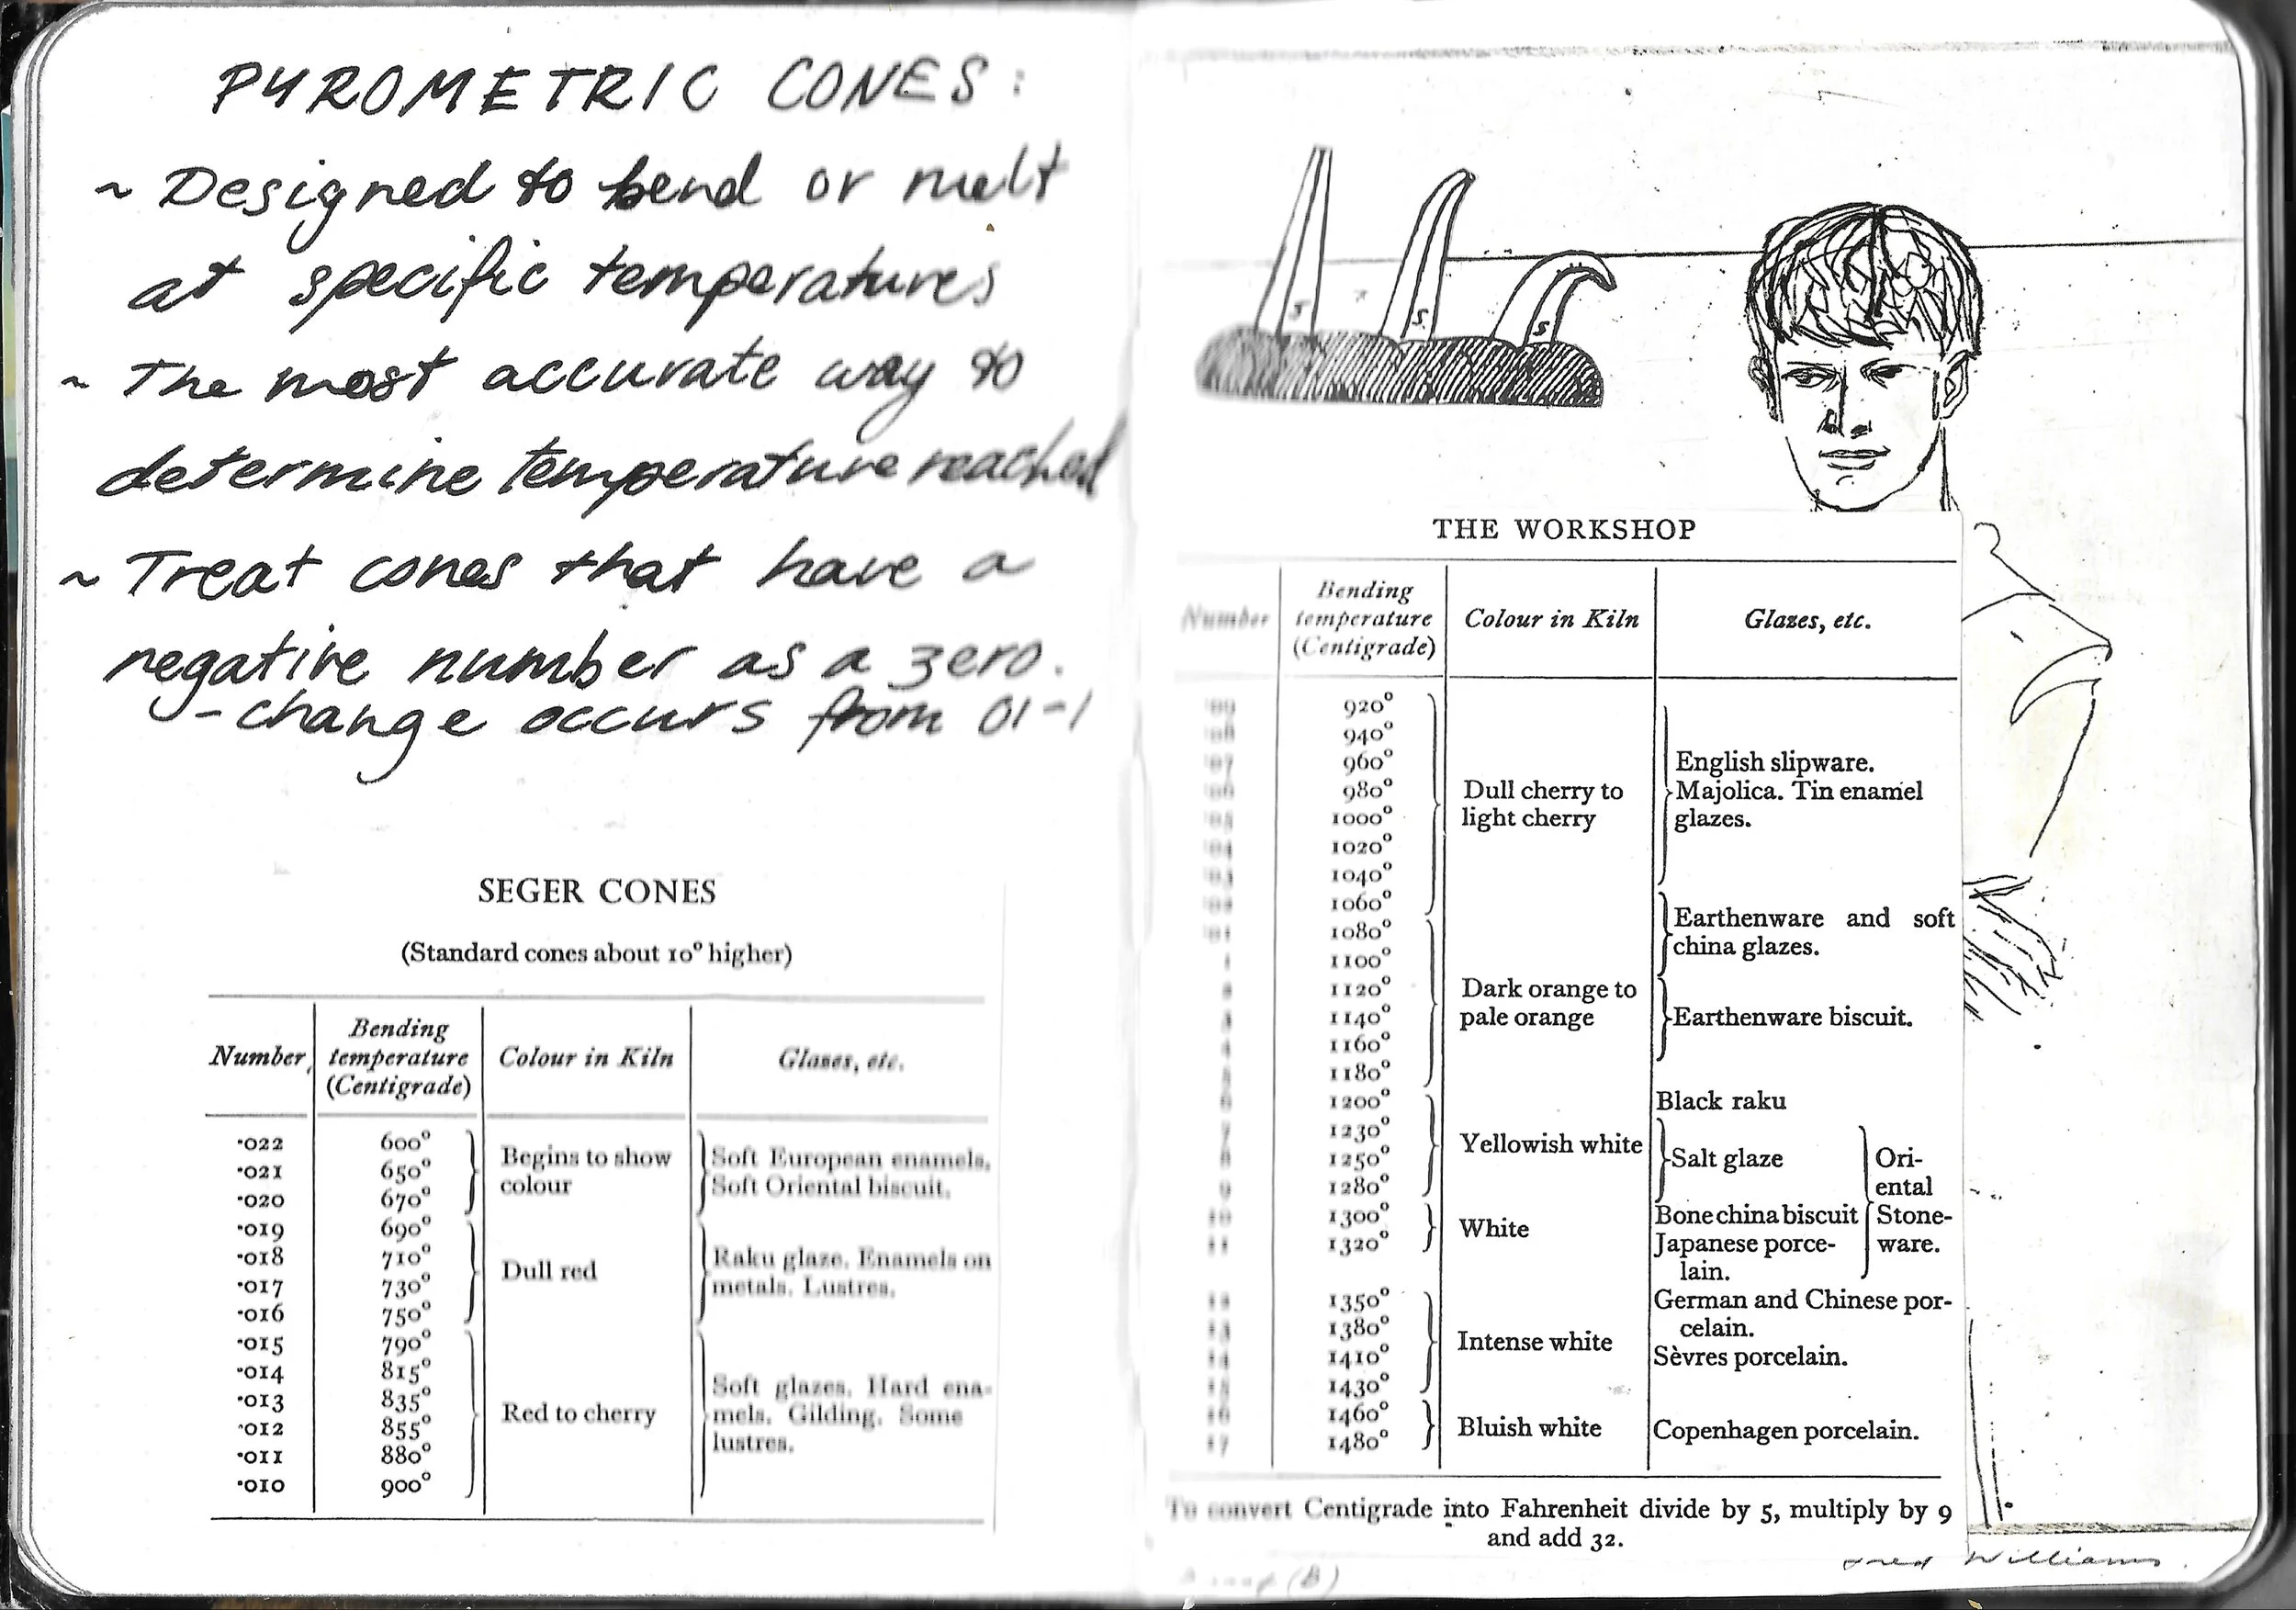 PYROMETRIC CONES:
~ Designed to bend or melt
at specific temperatures
~ The most accurate way to
determine temperature reached
~ Treat cones that have a
negative number as a zero.
- change occurs from 01-1
SEGER CONES
(Standard cones about 10° higher)
Number Bending temperature (Centigrade) Colour in Kiln Glazes, etc.
·022 600°
·021 650° Begins to show Soft European enamels.
·020 670° colour Soft Oriental biscuit.
·019 690°
·018 710° Dull red Raku glaze. Enamels on
·017 730° metals. Lustres.
·016 750°
·015 790°
·014 815°
·013 835° Soft glazes. Hard ena-
·012 855° Red to cherry mels. Gilding. Some
·011 880° lustres.
·010 900°
5 S S
THE WORKSHOP
Number Bending temperature (Centigrade) Colour in Kiln Glazes, etc.
920°
940°
960° English slipware.
980° Dull cherry to Majolica. Tin enamel
1000° light cherry glazes.
1020°
1040°
1060° Earthenware and soft
1080° china glazes.
1 1100°
1120° Dark orange to
1140° pale orange Earthenware biscuit.
1160°
1180°
1200° Black raku
7 1230° Yellowish white
1250° Salt glaze Ori-
9 1280° ental
10 1300° White Bone china biscuit Stone-
11 1320° Japanese porce- ware.
lain.
1350° German and Chinese por-
13 1380° Intense white celain.
14 1410° Sèvres porcelain.
15 1430°
16 1460° Bluish white Copenhagen porcelain.
17 1480°
To convert Centigrade into Fahrenheit divide by 5, multiply by 9
and add 32.
Fred Williams.
(B)